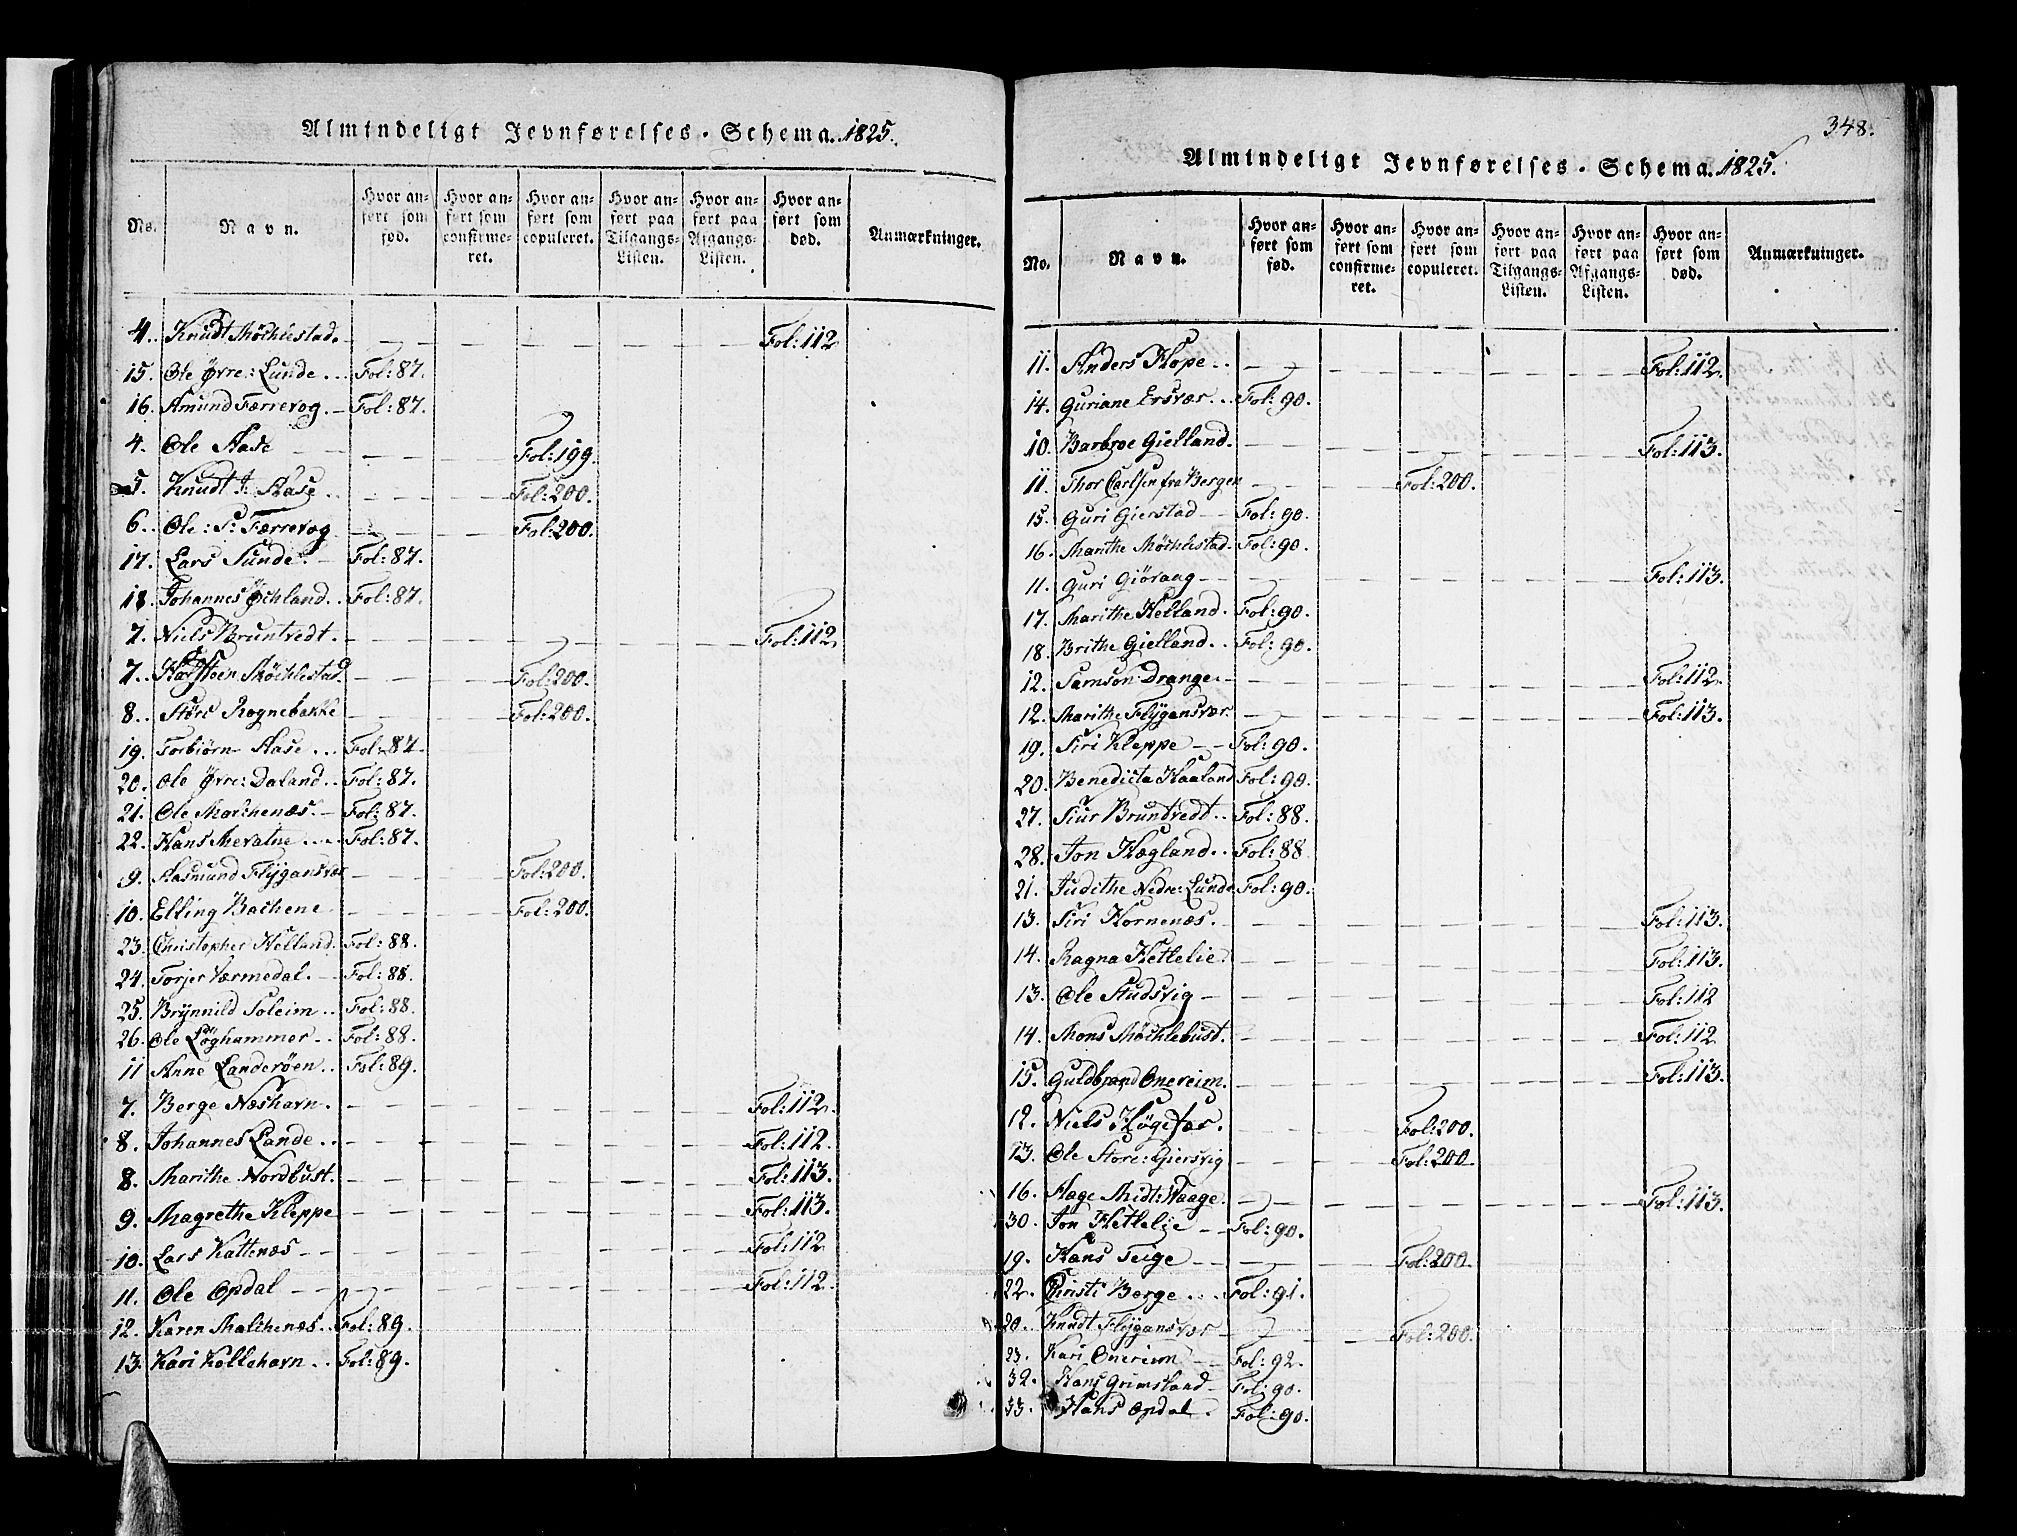 Almindeligt Jevnførelses-Schema. 1825.
No. Navn. Hvor anført som fød. Hvor anført som confirmeret. Hvor anført som copuleret. Hvor anført paa Tilgangs-Listen. Hvor anført paa Afgangs-Listen. Hvor anført som død. Anmærkninger.
4. Knudt Möchlestad. Fol: 112
15. Ole Øvre: Lunde.. Fol: 87.
16. Amund Færrevog. Fol: 87.
4. Ole Aase Fol: 199.
5. Knudt J: Aase.. Fol: 200.
6. Ole: S: Færrevog Fol: 200.
17. Lars Sunde. Fol: 87.
18. Johannes Øchland.. Fol: 87.
7. Niels Bruntvedt. Fol: 112
7. Möchlestad. Fol: 200.
8. Rognebakke Fol: 200.
19. Torbiörn Aase... Fol: 87.
20. Ole Øvre: Daland.. Fol: 87.
21. Ole Malchenæs. Fol: 87.
22. Hans Mevatne.... Fol: 87.
9. Aasmund Flygansvær Fol: 200.
10. Elling Bachene Fol: 200.
23. Christopher Helland. Fol: 88.
24. Torjer Værmedal. Fol: 88.
25. Brynnild Soleim.. Fol: 88.
26. Ole Løghammer.. Fol: 88.
11 Anne Landerøen.. Fol: 89.
7. Berge Næshavn. Fol: 112.
8. Johannes Lande.. Fol: 112.
8. Marithe Nordbust. Fol: 113.
9. Magrethe Kleppe Fol: 113.
10. Lars Kattenæs Fol: 112
11. Ole Opdal Fol: 112.
12. Karen Malchenæs.. Fol: 89.
13. Kari Koltehavn.. Fol: 89.
348.
Almindeligt Jevnførelses-Schema. 1825.
No. Navn. Hvor anført som fød. Hvor anført som confirmeret. Hvor anført som copuleret. Hvor anført paa Tilgangs-Listen. Hvor anført paa Afgangs-Listen. Hvor anført som død. Anmærkninger.
11. Anders Hope.. Fol: 112.
14. Guriane Ersvær... Fol: 90.
10. Barbroe Gielland. Fol: 113.
11. Thor Carlsen fra Bergen Fol: 200.
15. Guri Gierstad Fol: 90.
16. Marithe Möchlestad. Fol: 90.
11. Guri Giöravg Fol: 113.
17. Marithe Helland. Fol: 90.
18. Brithe Gielland.. Fol: 90.
12. Samson Drange Fol: 112.
12. Marithe Flygansvær. Fol: 113.
19. Siri Kleppe Fol: 90.
20. Benedicta Haaland Fol: 90.
27. Siur Bruntvedt.. Fol: 88.
28. Jon Hægland.. Fol: 88.
21. Judithe Nedre: Lunde Fol: 90.
13. Siri Hornenæs. Fol: 113.
14. Ragna Hetlelie. Fol: 113.
13. Ole Studsvig Fol: 112
14. Mons Möchlebust. Fol: 112
15. Guldbrand Onereim. Fol: 113.
12. Niels Høgefos. Fol: 200.
13. Ole Store: Giersvig Fol: 200.
16. Aage Midt: Waage. Fol: 113.
30. Jon Hetlelie Fol: 90.
19. Hans Teige Fol: 200.
22. Christi Berge... Fol: 91.
20. Knudt Flygansvær Fol: 200.
23. Kari Onereim Fol: 92.
32. Hans Grimsland Fol: 90.
33. Hans Opdal. Fol: 90.